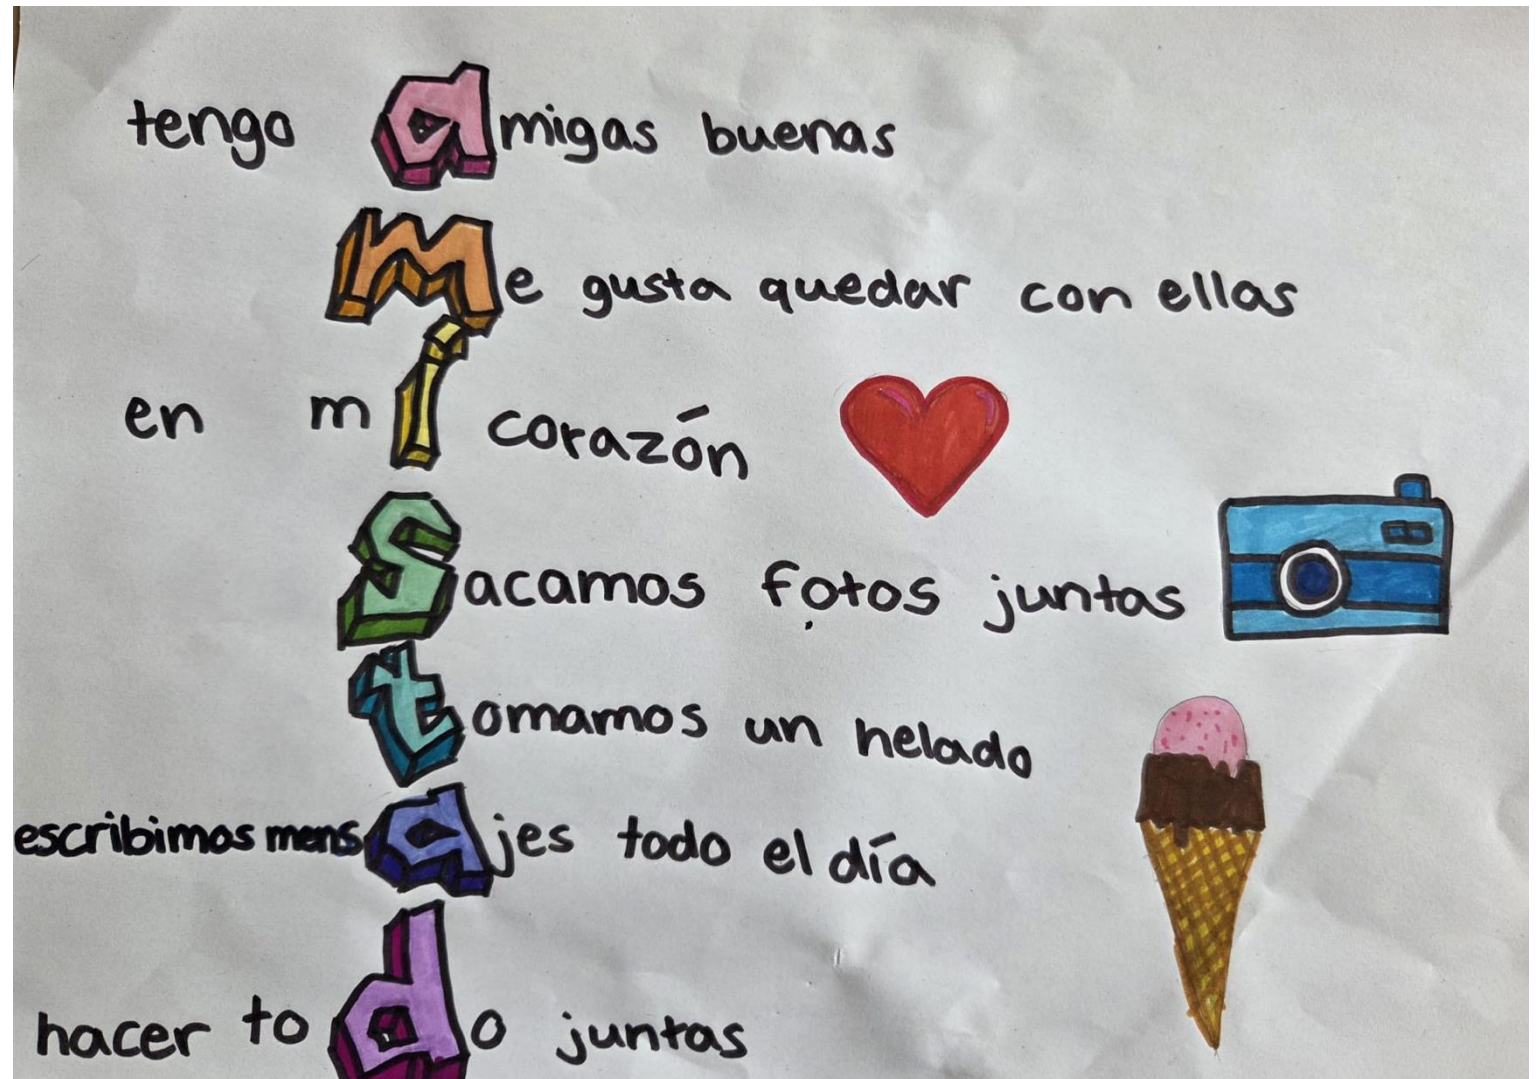 tengo amigas buenas
me gusta quedar con ellas
en mi corazón
Sacamos fotos juntas
tomamos un helado
escribimos mensajes todo el día
hacer todo juntas